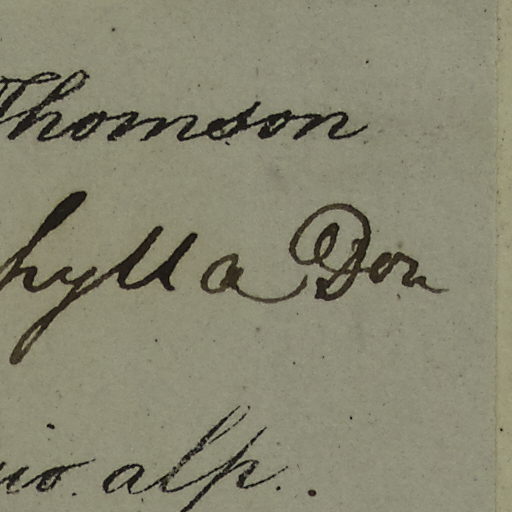 Thomson
hylla Don
io. alp.